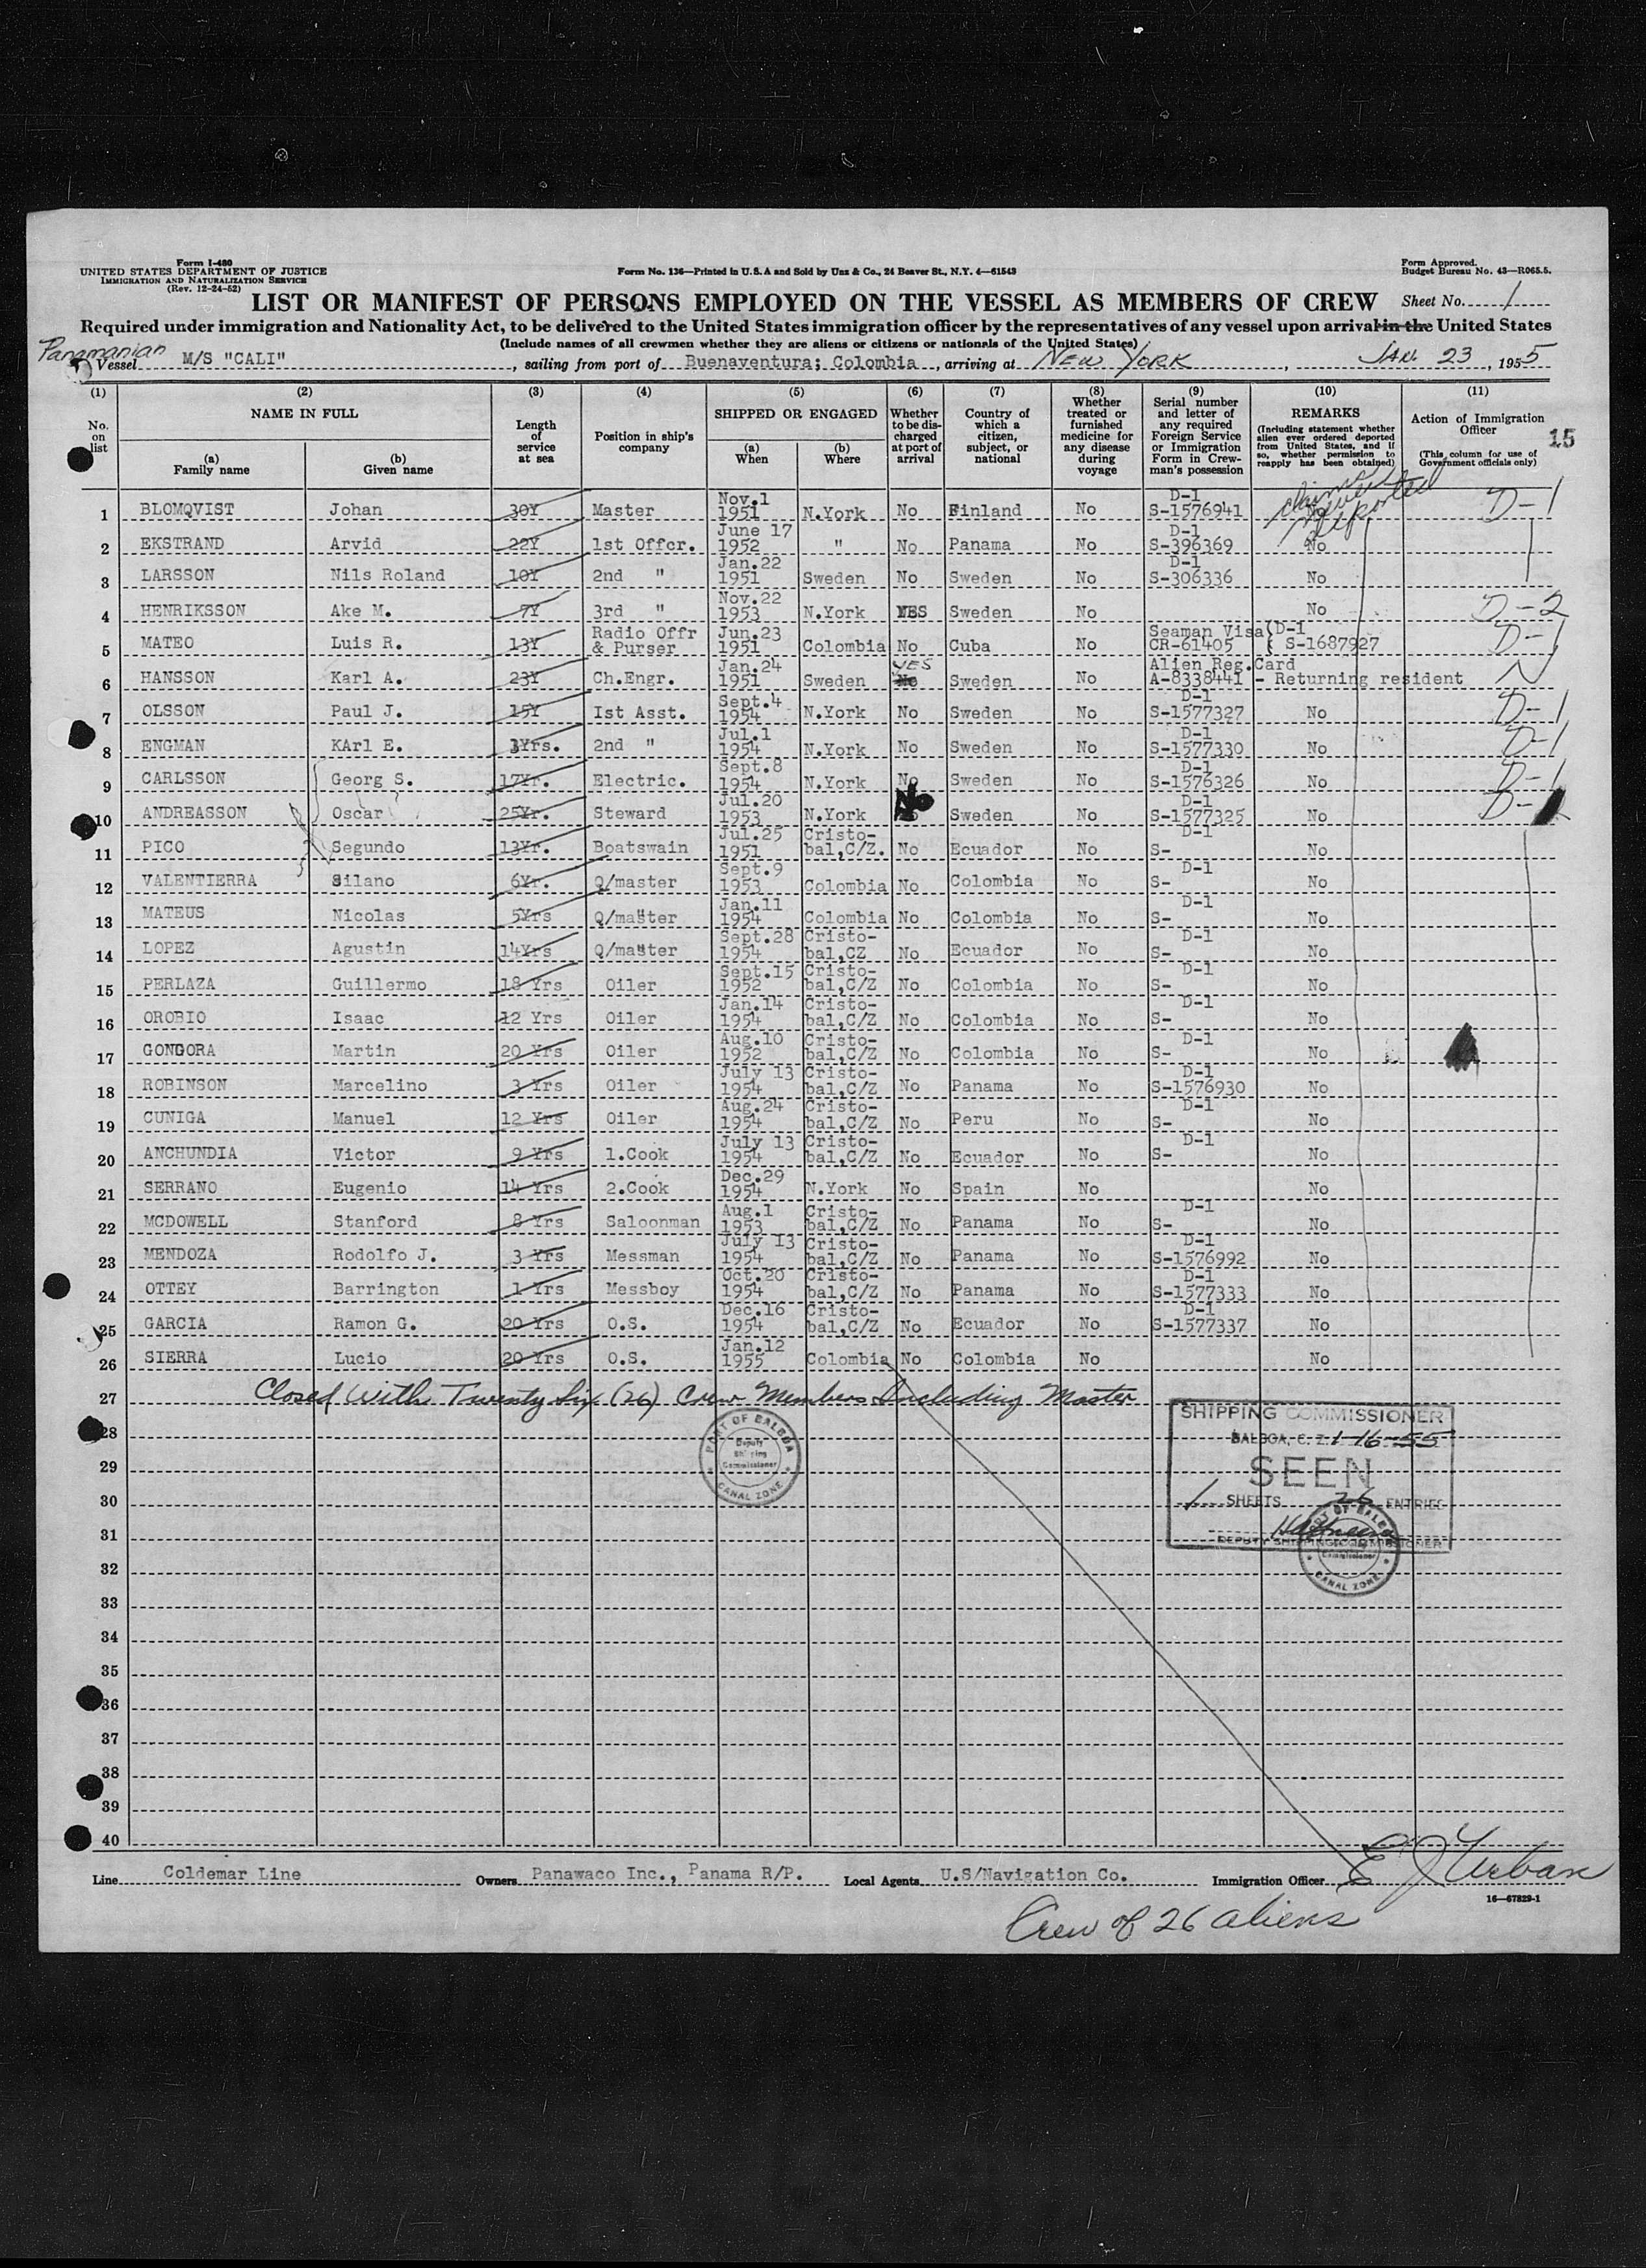 Form I-480
UNITED STATES DEPARTMENT OF JUSTICE
IMMIGRATION AND NATURALIZATION SERVICE
(Rev. 12-24-52)
Form No. 136—Printed in U.S.A and Sold by Unz & Co., 24 Beaver St., N.Y. 4—61543
Form Approved.
Budget Bureau No. 43—R065.5.
LIST OR MANIFEST OF PERSONS EMPLOYED ON THE VESSEL AS MEMBERS OF CREW
Sheet No. 1
Required under immigration and Nationality Act, to be delivered to the United States immigration officer by the representatives of any vessel upon arrival in the United States
(Include names of all crewmen whether they are aliens or citizens or nationals of the United States)
Panamanian
Vessel M/S "CALI", sailing from port of Buenaventura; Colombia, arriving at NEW YORK, JAN. 23, 1955
(1) No. on list
(2) NAME IN FULL
(a) Family name
(b) Given name
(3) Length of service at sea
(4) Position in ship's company
(5) SHIPPED OR ENGAGED
(a) When
(b) Where
(6) Whether to be discharged at port of arrival
(7) Country of which a citizen, subject, or national
(8) Whether treated or furnished medicine for any disease during voyage
(9) Serial number and letter of any required Foreign Service or Immigration Form in Crewman's possession
(10) REMARKS
(Including statement whether alien ever ordered deported from United States, and if so, whether permission to reapply has been obtained)
(11) Action of Immigration Officer
(This column for use of Government officials only)
15
1 BLOMQVIST Johan 30Y Master Nov.1 1951 N.York No Finland No D-1 S-1576941 deported D-1
2 EKSTRAND Arvid 22Y 1st Offcr. June 17 1952 " No Panama No D-1 S-396369 No
3 LARSSON Nils Roland 10Y 2nd " Jan.22 1951 Sweden No Sweden No D-1 S-306336 No
4 HENRIKSSON Ake M. 7Y 3rd " Nov.22 1953 N.York YES Sweden No No D-2
5 MATEO Luis R. 13Y Radio Offr & Purser Jun.23 1951 Colombia No Cuba No Seaman Visa CR-61405 D-1 S-1687927 D-1
6 HANSSON Karl A. 23Y Ch.Engr. Jan.24 1951 Sweden YES No Sweden No Alien Reg.Card A-8338441 - Returning resident N
7 OLSSON Paul J. 15Y Ist Asst. Sept.4 1954 N.York No Sweden No D-1 S-1577327 No D-1
8 ENGMAN KArl E. 3Yrs. 2nd " Jul.1 1954 N.York No Sweden No D-1 S-1577330 No D-1
9 CARLSSON Georg S. 17Yr. Electric. Sept.8 1954 N.York No Sweden No D-1 S-1576326 No D-1
10 ANDREASSON Oscar 25Yr. Steward Jul.20 1953 N.York No Sweden No D-1 S-1577325 No D-1
11 PICO Segundo 13Yr. Boatswain Jul.25 1951 Cristobal,C/Z. No Ecuador No D-1 S- No
12 VALENTIERRA Silano 6Yr. Q/master Sept.9 1953 Colombia No Colombia No D-1 S- No
13 MATEUS Nicolas 5Yrs Q/master Jan.11 1954 Colombia No Colombia No D-1 S- No
14 LOPEZ Agustin 14Yrs Q/master Sept.28 1954 Cristobal,CZ No Ecuador No D-1 S- No
15 PERLAZA Guillermo 18 Yrs Oiler Sept.15 1952 Cristobal,C/Z No Colombia No D-1 S- No
16 OROBIO Isaac 12 Yrs Oiler Jan.14 1954 Cristobal,C/Z No Colombia No D-1 S- No
17 GONGORA Martin 20 Yrs Oiler Aug.10 1952 Cristobal,C/Z No Colombia No D-1 S- No
18 ROBINSON Marcelino 3 Yrs Oiler July 13 1954 Cristobal,C/Z No Panama No D-1 S-1576930 No
19 CUNIGA Manuel 12 Yrs Oiler Aug.24 1954 Cristobal,C/Z No Peru No D-1 S- No
20 ANCHUNDIA Victor 9 Yrs 1.Cook July 13 1954 Cristobal,C/Z No Ecuador No D-1 S- No
21 SERRANO Eugenio 14 Yrs 2.Cook Dec.29 1954 N.York No Spain No No
22 MCDOWELL Stanford 8 Yrs Saloonman Aug.1 1953 Cristobal,C/Z No Panama No D-1 S- No
23 MENDOZA Rodolfo J. 3 Yrs Messman July 13 1954 Cristobal,C/Z No Panama No D-1 S-1576992 No
24 OTTEY Barrington 1 Yrs Messboy Oct.20 1954 Cristobal,C/Z No Panama No D-1 S-1577333 No
25 GARCIA Ramon G. 20 Yrs O.S. Dec.16 1954 Cristobal,C/Z No Ecuador No D-1 S-1577337 No
26 SIERRA Lucio 20 Yrs O.S. Jan.12 1955 Colombia No Colombia No No
27 Closed With Twenty Six (26) Crew Members Including Master
28
29
30
31
32
33
34
35
36
37
38
39
40
PORT OF BALBOA
Deputy Shipping Commissioner
CANAL ZONE
SHIPPING COMMISSIONER
BALBOA, C. Z. 1-16-55
SEEN
1 SHEETS 26 ENTRIES
DEPUTY SHIPPING COMMISSIONER
PORT OF BALBOA
Commissioner
CANAL ZONE
Line Coldemar Line Owners Panawaco Inc., Panama R/P. Local Agents U.S/Navigation Co. Immigration Officer E J Urban
16—67829-1
Crew of 26 aliens